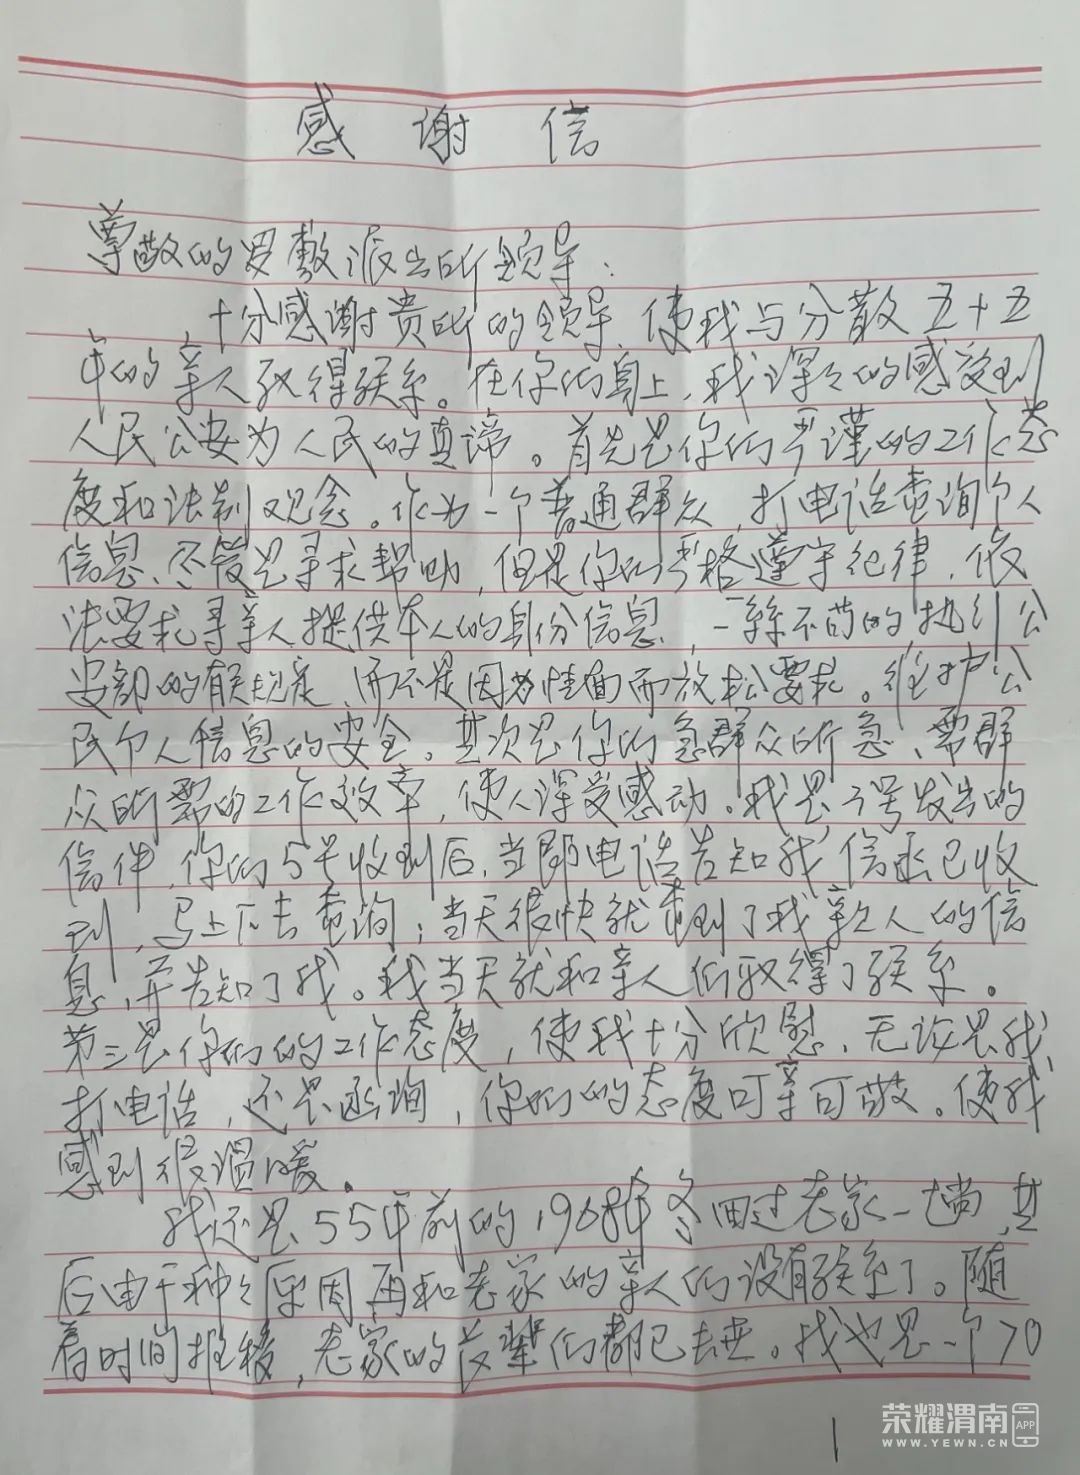 感谢信
尊敬的罗敷派出所领导：
十分感谢贵所的领导、使我与分散五十五
年的亲人取得联系。在你们身上，我深深的感受到
人民公安为人民的真谛。首先是你们严谨的工作态
度和法制观念。作为一个普通群众，打电话查询个人
信息、尽管是寻求帮助，但是你们严格遵守纪律，依
法要求寻亲人提供本人的身份信息，一丝不苟的执行公
安部的有关规定，而不是因为情面而放松要求。维护公
民个人信息的安全。其次是你们急群众所急、需群
众所需的工作效率，使人深受感动。我是 号发出的
信件，你们5号收到后，当即电话告知我信函已收
到，马上下去查询；当天很快就查到了我亲人的信
息，并告知了我。我当天就和亲人们取得了联系。
第三是你们的工作态度，使我十分欣慰，无论是我
打电话，还是函询，你们的态度可亲可敬。使我
感到很温暖。
我还是55年前的，1968年冬回过老家一趟，其
后由于种种原因再和老家的亲人们没有联系了。随
着时间推移，老家的长辈们都已去世。我也是一个70
1
荣耀渭南APP
WWW.YEWN.CN